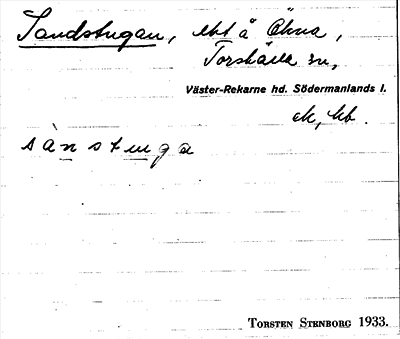 Sandstugan, ebt å Öhna,
Torshälla sn,
Väster-Rekarne hd. Södermanlands l.
ek, kb.
sànstuga
TORSTEN STENBORG 1933.